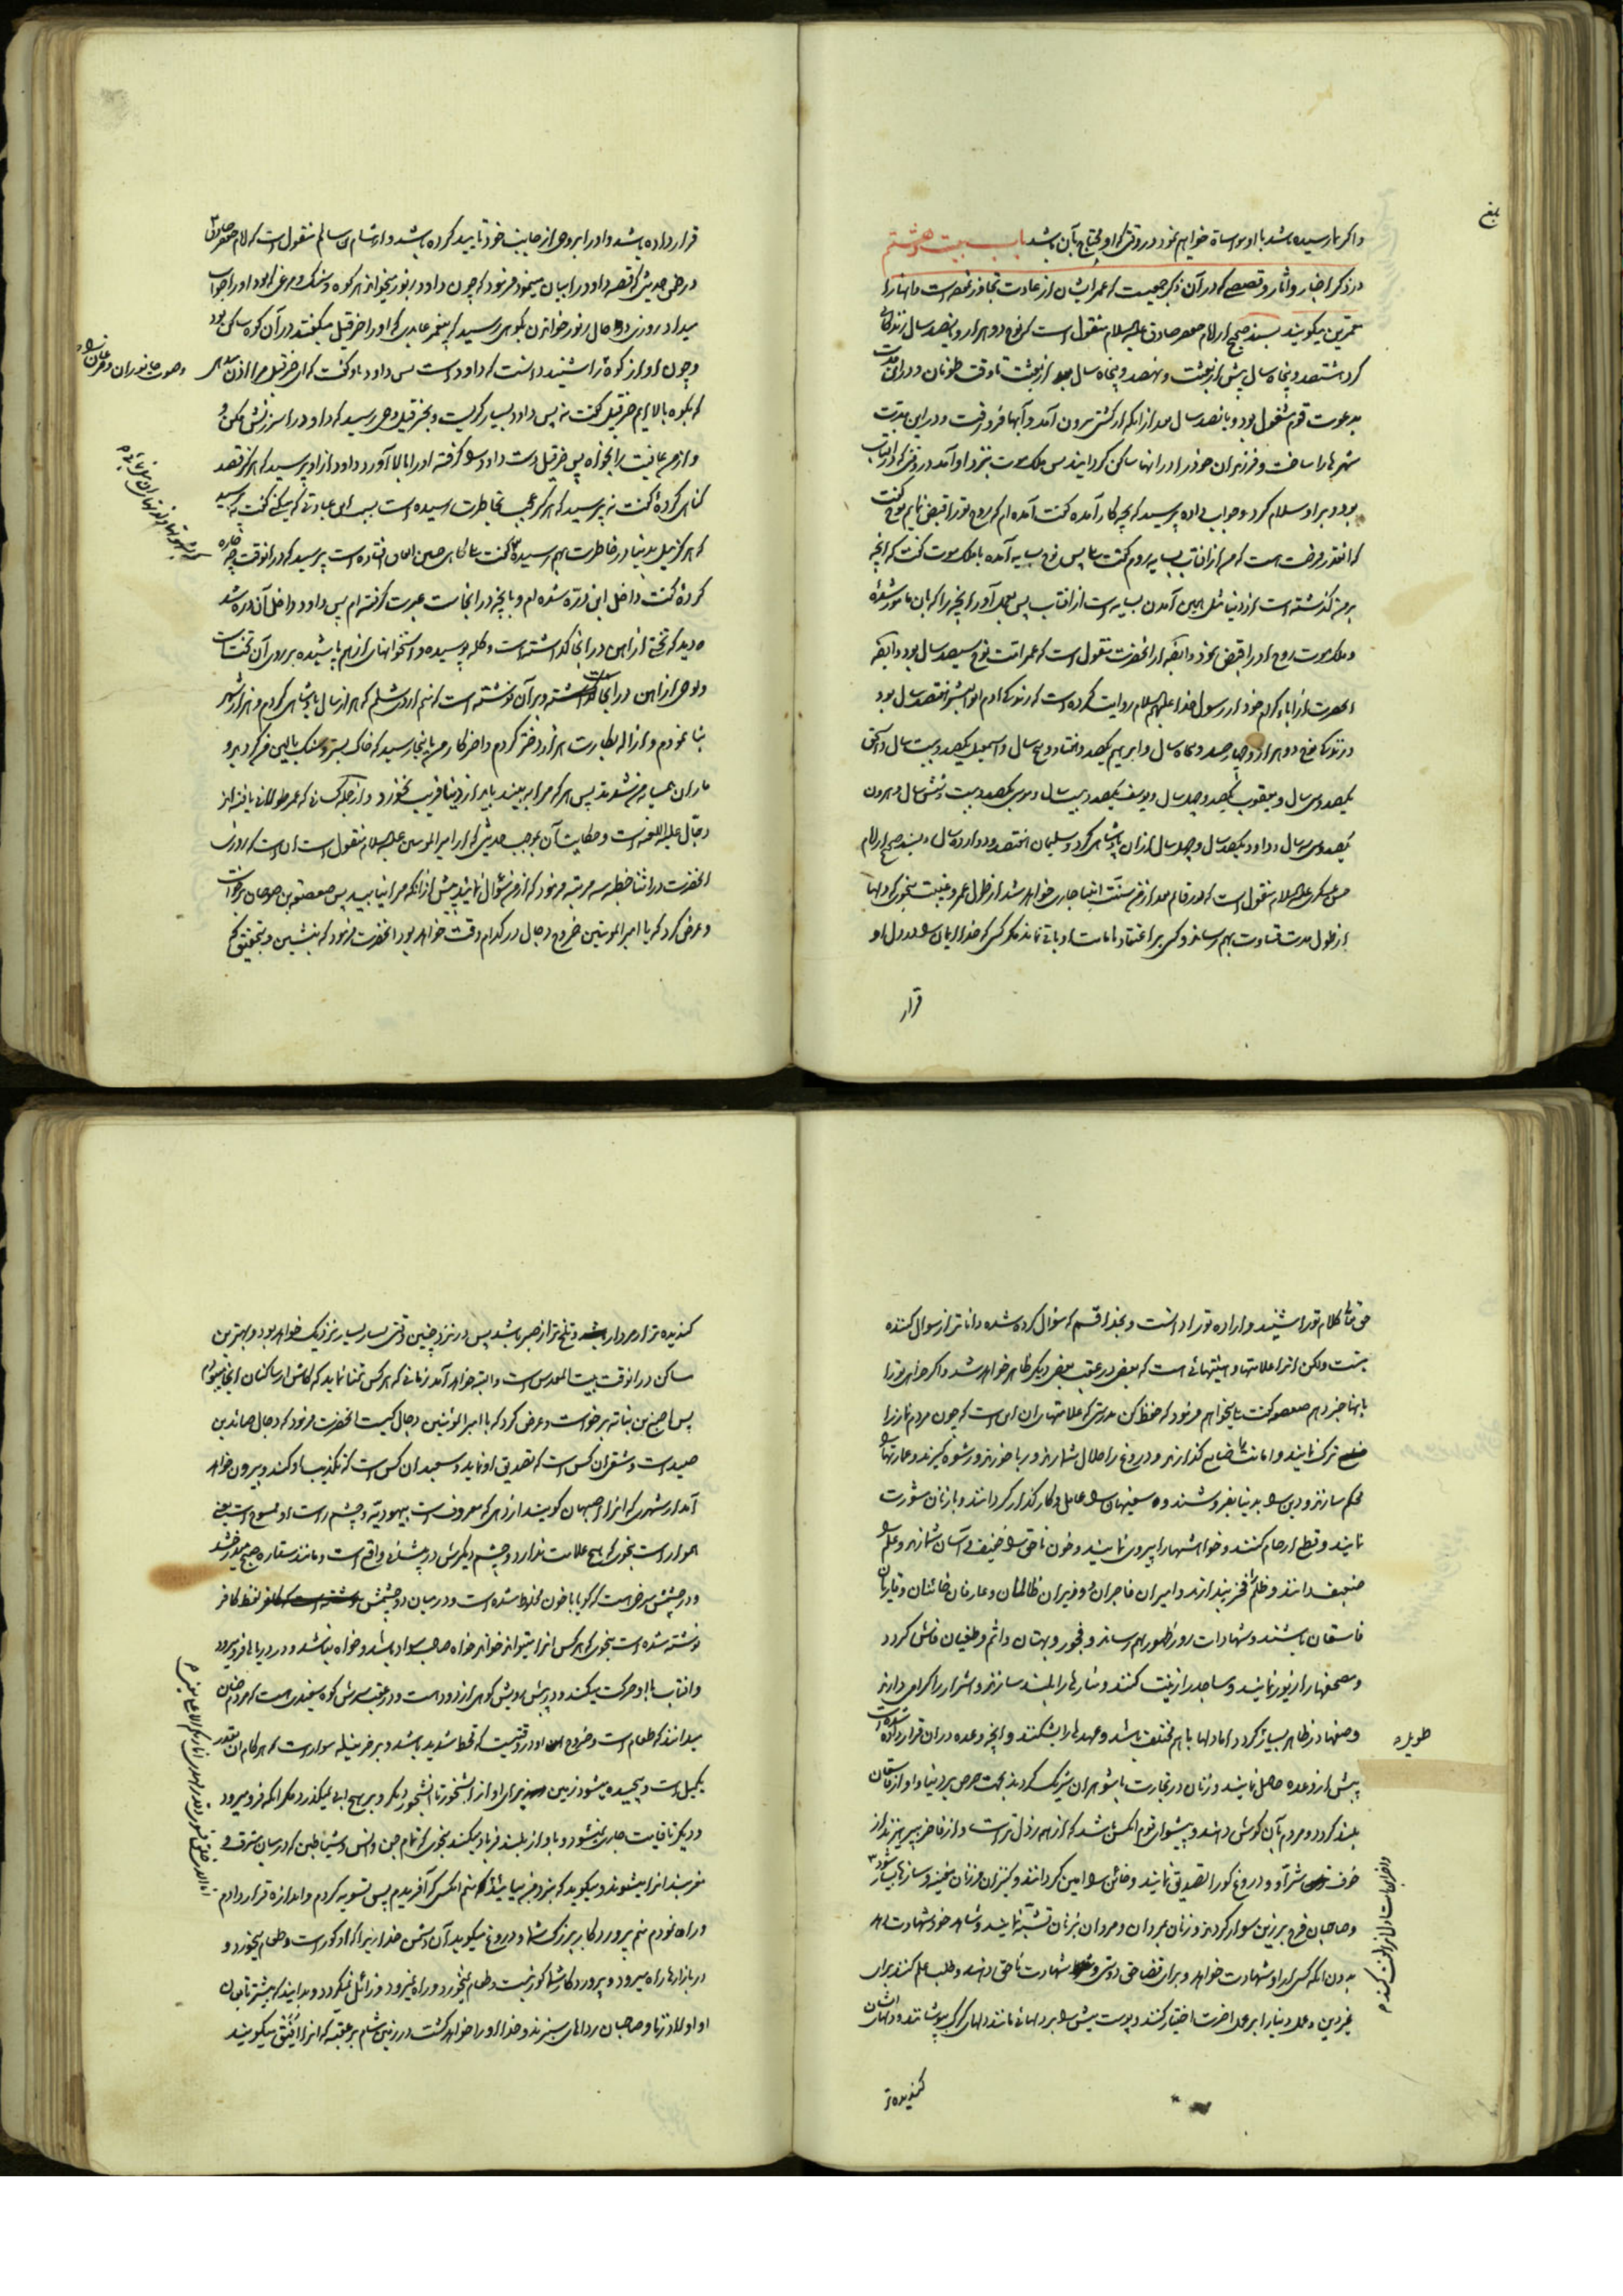 بلغ
و اگر بما رسیده باشد با او مواساة خواهیم نمود در وقتی که او محتاج بآن باشد باب بیست و هشتم
در ذکر اخبار و آثار و قصصی که در آن ذکر جمعیست که عمر ایشان از عادت تجاوز نموده است و انها را
معمرین میگویند بسند صحیح از امام جعفر صادق علیه السلام منقول است که نوح دو هزار و پانصد سال زندگانی
کرد هشتصد و پنجاه سال پیش از بعثت و نهصد و پنجاه سال از بعثت تا وقت طوفان و در این مدت
بدعوت قوم مشغول بود و پانصد سال بعد از انکه از کشتی بیرون آمد و آبها فرو رفت و در این مدت
شهرها را ساخت و فرزندان خود را در انها ساکن گردانید پس ملک موت بنزد او آمد در وقتی که در افتاب
بود و بر او سلام کرد و جواب داده پرسید که بچه کار آمده گفت آمده ام که روح تو را قبض نمایم نوح گفت
که انقدر رخصت هست که من از افتاب بسایه روم گفت بلی پس نوح بسایه آمده با ملک موت گفت که انچه
بر من گذشته است از دنیا مثل همین آمدن بسایه است از افتاب پس بعمل آور انچه را که بان مامور شدهٔ
و ملک موت روح او را قبض نمود و ایضا از انحضرت منقول است که عمر امت نوح سیصد سال بود و ایضا
انحضرت از اباء کرام خود از رسول خدا علیهم السلام روایت کرده است که زندگانی ادم ابو البشر نهصد سال بود
و زندگانی نوح دو هزار و چهارصد و پنجاه سال و ابراهیم یکصد و هفتاد و پنج سال و اسمعیل یکصد و بیست سال و اسحق
یکصد و سی سال و یعقوب یکصد و چهل سال و یوسف یکصد و بیست سال و موسی یکصد و بیست و شش سال و هرون
یکصد و سی و سه سال و داود یکصد سال و چهل سال از ان پادشاهی کرد و سلیمان هفتصد و دوازده سال و بسند صحیح از امام
حسن عسکری علیه السلام منقول است که در قائم بعد از من سنت انبیا جاری خواهد شد از طول عمر و غیبت بنحوی که دلها
از طول مدت قساوت بهم رساند و کسی بر اعتقاد بامامت او باقی نماند مگر کسی که خدا ایمان را در دل او
قرار
قرار داده باشد و او را بروحی از جانب خود تایید کرده باشد و از هشام بن سالم منقول است که امام جعفر صادق ۳
در طی حدیثی که قصه داود را بیان مینمود فرمود که چون داود زبور میخواند هر کوه و سنک و مرغی که بود او را جواب
میداد روزی در حال زبور خواندن بکوهی رسید که پیغمبر عابدی که او را حزقیل میگفتند در آن کوه ساکن بود
و چون او اواز کوه را شنید دانست که داود است پس داود باو گفت که ای حزقیل مرا اذن میدهی
و صوت جانوران و مرغان را شنید
که بکوه بالا ایم حزقیل گفت نه پس داود بسیار گریست و بحزقیل وحی رسید که داود را سرزنش مکن و
و از من عافیت را بخواه پس حزقیل دست داود را گرفته او را بالا آورد داود از او پرسید که هرگز قصد
گناهی کردهٔ گفت نه پرسید که هرگز عجب بخاطرت رسیده است بسبب این عبادتی که میکنی گفت نه پرسید
که هرگز میل بدنیا در خاطرت بهم رسیده گفت بلی گاهی چنین اتفاق افتاده است پرسید که در انوقت چه چاره
کردهٔ گفت داخل این دره شده ام و بانچه در انجاست عبرت گرفته ام پس داود داخل آن دره شد
دید که تختی از اهن در انجا گذاشته است و کله پوسیده و استخوانهای از هم پاشیده بر روی آن تخت است
و لوحی از اهن در انجا گذاشته و بر آن نوشته است که منم اروی شلم که هزار سال پادشاهی کردم و هزار شهر
بنا نمودم و ازاله بکارت هزار دختر کردم و اخر کار من باینجا رسید که خاک بستر و سنک بالین من گردید و
ماران همسایه من شدند پس هر که مرا ببیند باید از دنیا فریب نخورد و از جمله کسانی که عمر طولانی یافته اند
دجال علیه اللعنه است و حکایت آن بموجب حدیثی که از امیر المؤمنین علیه السلام منقول است ان است که روزی
انحضرت در اثنا خطبه سه مرتبه فرمود که از من سؤال نمائید پیش از انکه مرا نیابید پس صعصعة بن صوحان برخواست
و عرض کرد که یا امیر المؤمنین خروج دجال در کدام وقت خواهد بود انحضرت فرمود که بنشین و بتحقیق که
حق تعالی کلام تو را شنید و اراده تو را دانست و بخدا قسم که سؤال کرده شده داناتر از سوال کننده
نیست ولکن انرا علامتها و هیئتهائی است که بعضی در عقب بعضی دیگر ظاهر خواهد شد و اگر خواهی تو را
بانها خبر دهم صعصعه گفت بلی میخواهم فرمود که حفظ کن بدرستی که علامتهای ان این است که چون مردم نماز را
ترک نمایند و امانت را ضایع گذارند و دروغ را حلال شمارند و ربا خورند و رشوه گیرند و عمارتها را
محکم سازند و دین را بدنیا بفروشند و سفیهان را عامل و کار گذار گردانند و با زنان مشورت
نمایند و قطع ارحام کنند و خواهشها را پیروی نمایند و خون ناحق را خفیف و آسان شمارند و علم را
ضعیف دانند و ظلم را فخر پندارند و امیران فاجران و وزیران ظالمان و عارفان خائنان و قاریان
فاسقان باشند و شهادات زور ظهور بهم رساند و فجور و بهتان و اثم و طغیان فاش گردد
و مصحفها را زیور نمایند و مساجد را زینت کنند و منارها را بلند سازند و اشرار را گرامی دارند
و صفها در ظاهر بسیار گردد اما دلها با هم مختلف باشد و عهدها را بشکنند و انچه وعده در ان قرار داده شده است
طویله
پیش از وعده حاصل نمایند و زنان در تجارت با شوهران شریک گردند بجهت حرص بر دنیا و اواز فاسقان
بلند گردد و مردم بآن گوش دهند و پیشوای قوم انکس باشد که از همه رذل تر است و از فاجر بپرهیزند از
خوف شر او و دروغ گو را تصدیق نمایند و خائن را امین گردانند و کنیزان و زنان مغنیه و سازها بسیار شود
و صاحبان فرج بر زین سوار گردند و زنان بمردان و مردان بزنان تشبه نمایند و شاهد خود شهادت دهد
بدون انکه کسی از او شهادت خواهد و برای قضا حق دوستی شهادت ناحق دهند و طلب علم کنند برای
غیر دین و عمل دنیا را بر عمل اخرت اختیار کنند و پوست میش را بر دلهائی مانند دلهای گرگ بپوشانند و دلهای ایشان
گندیده تر
گندیده تر از مردار و تلخ تر از صبر باشد پس در نزد چنین وقتی بسیار بسیار نزدیک خواهد بود و بهترین
مساکن در انوقت بیت المقدس است و البته خواهد آمد زمانی که هر کس تمنا نماید که کاش از ساکنان انجا میبودم
پس اصبغ بن نباته برخواست و عرض کرد که یا امیر المؤمنین دجال کیست انحضرت فرمود که دجال صائد بن
صید است و شقی ان کس است که تصدیق او نماید و سعید ان کس است که تکذیب او کند و بیرون خواهد
آمد از شهری که انرا اصبهان گویند از دهی که معروف است بیهودیه و چشم راست او ممسوح است یعنی
هموار است بنحوی که هیچ علامت ندارد و چشم دیگرش در پیشانی واقع است و مانند ستاره صبح میدرخشد
و در چشمش سرخی است که گویا با خون مخلوط شده است و در میان دو چشمش لفظ کافر
نوشته شده است بنحوی که هر کس انرا میتواند خواند خواه صاحب سواد باشد و خواه نباشد و در دریاها فرو میرود
و افتاب با او حرکت میکند و در پیش رویش کوهی از دود است و در عقب سرش کوه سفیدی است که مردم چنان
میدانند که طعام است و خروج او در وقتیست که قحط شدید باشد و بر خر نیله سوار است که هر گام ان بقدر
یکمیل است و پیچیده میشود زمین برای او از ابشخور تا ابشخور دیگر و بر هیچ ابی نمیگذرد مگر انکه فرو میرود
و دیگر تا قیامت جاری نمیشود و باواز بلند فریاد میکند بنحوی که تمام جن و انس و شیاطین که در میان مشرق و
مغربند انرا میشنوند و میگوید که بنزد من بیائید که منم انکسی که آفریدم پس تسویه کردم و اندازه قرار دادم
و راه نمودم منم پروردگار بزرک شما و دروغ میگوید آن دشمن خدا زیرا که او کور است و طعام میخورد و
در بازارها راه میرود و پروردگار شما کور نیست و طعام نمیخورد و راه نمیرود و زائل نمیگردد و بدانید که بیشتر تابعان
او اولاد زنا و صاحبان رداهای سبزند و خدا او را خواهد کشت در زمین شام بر عقبه که انرا افیق میگویند